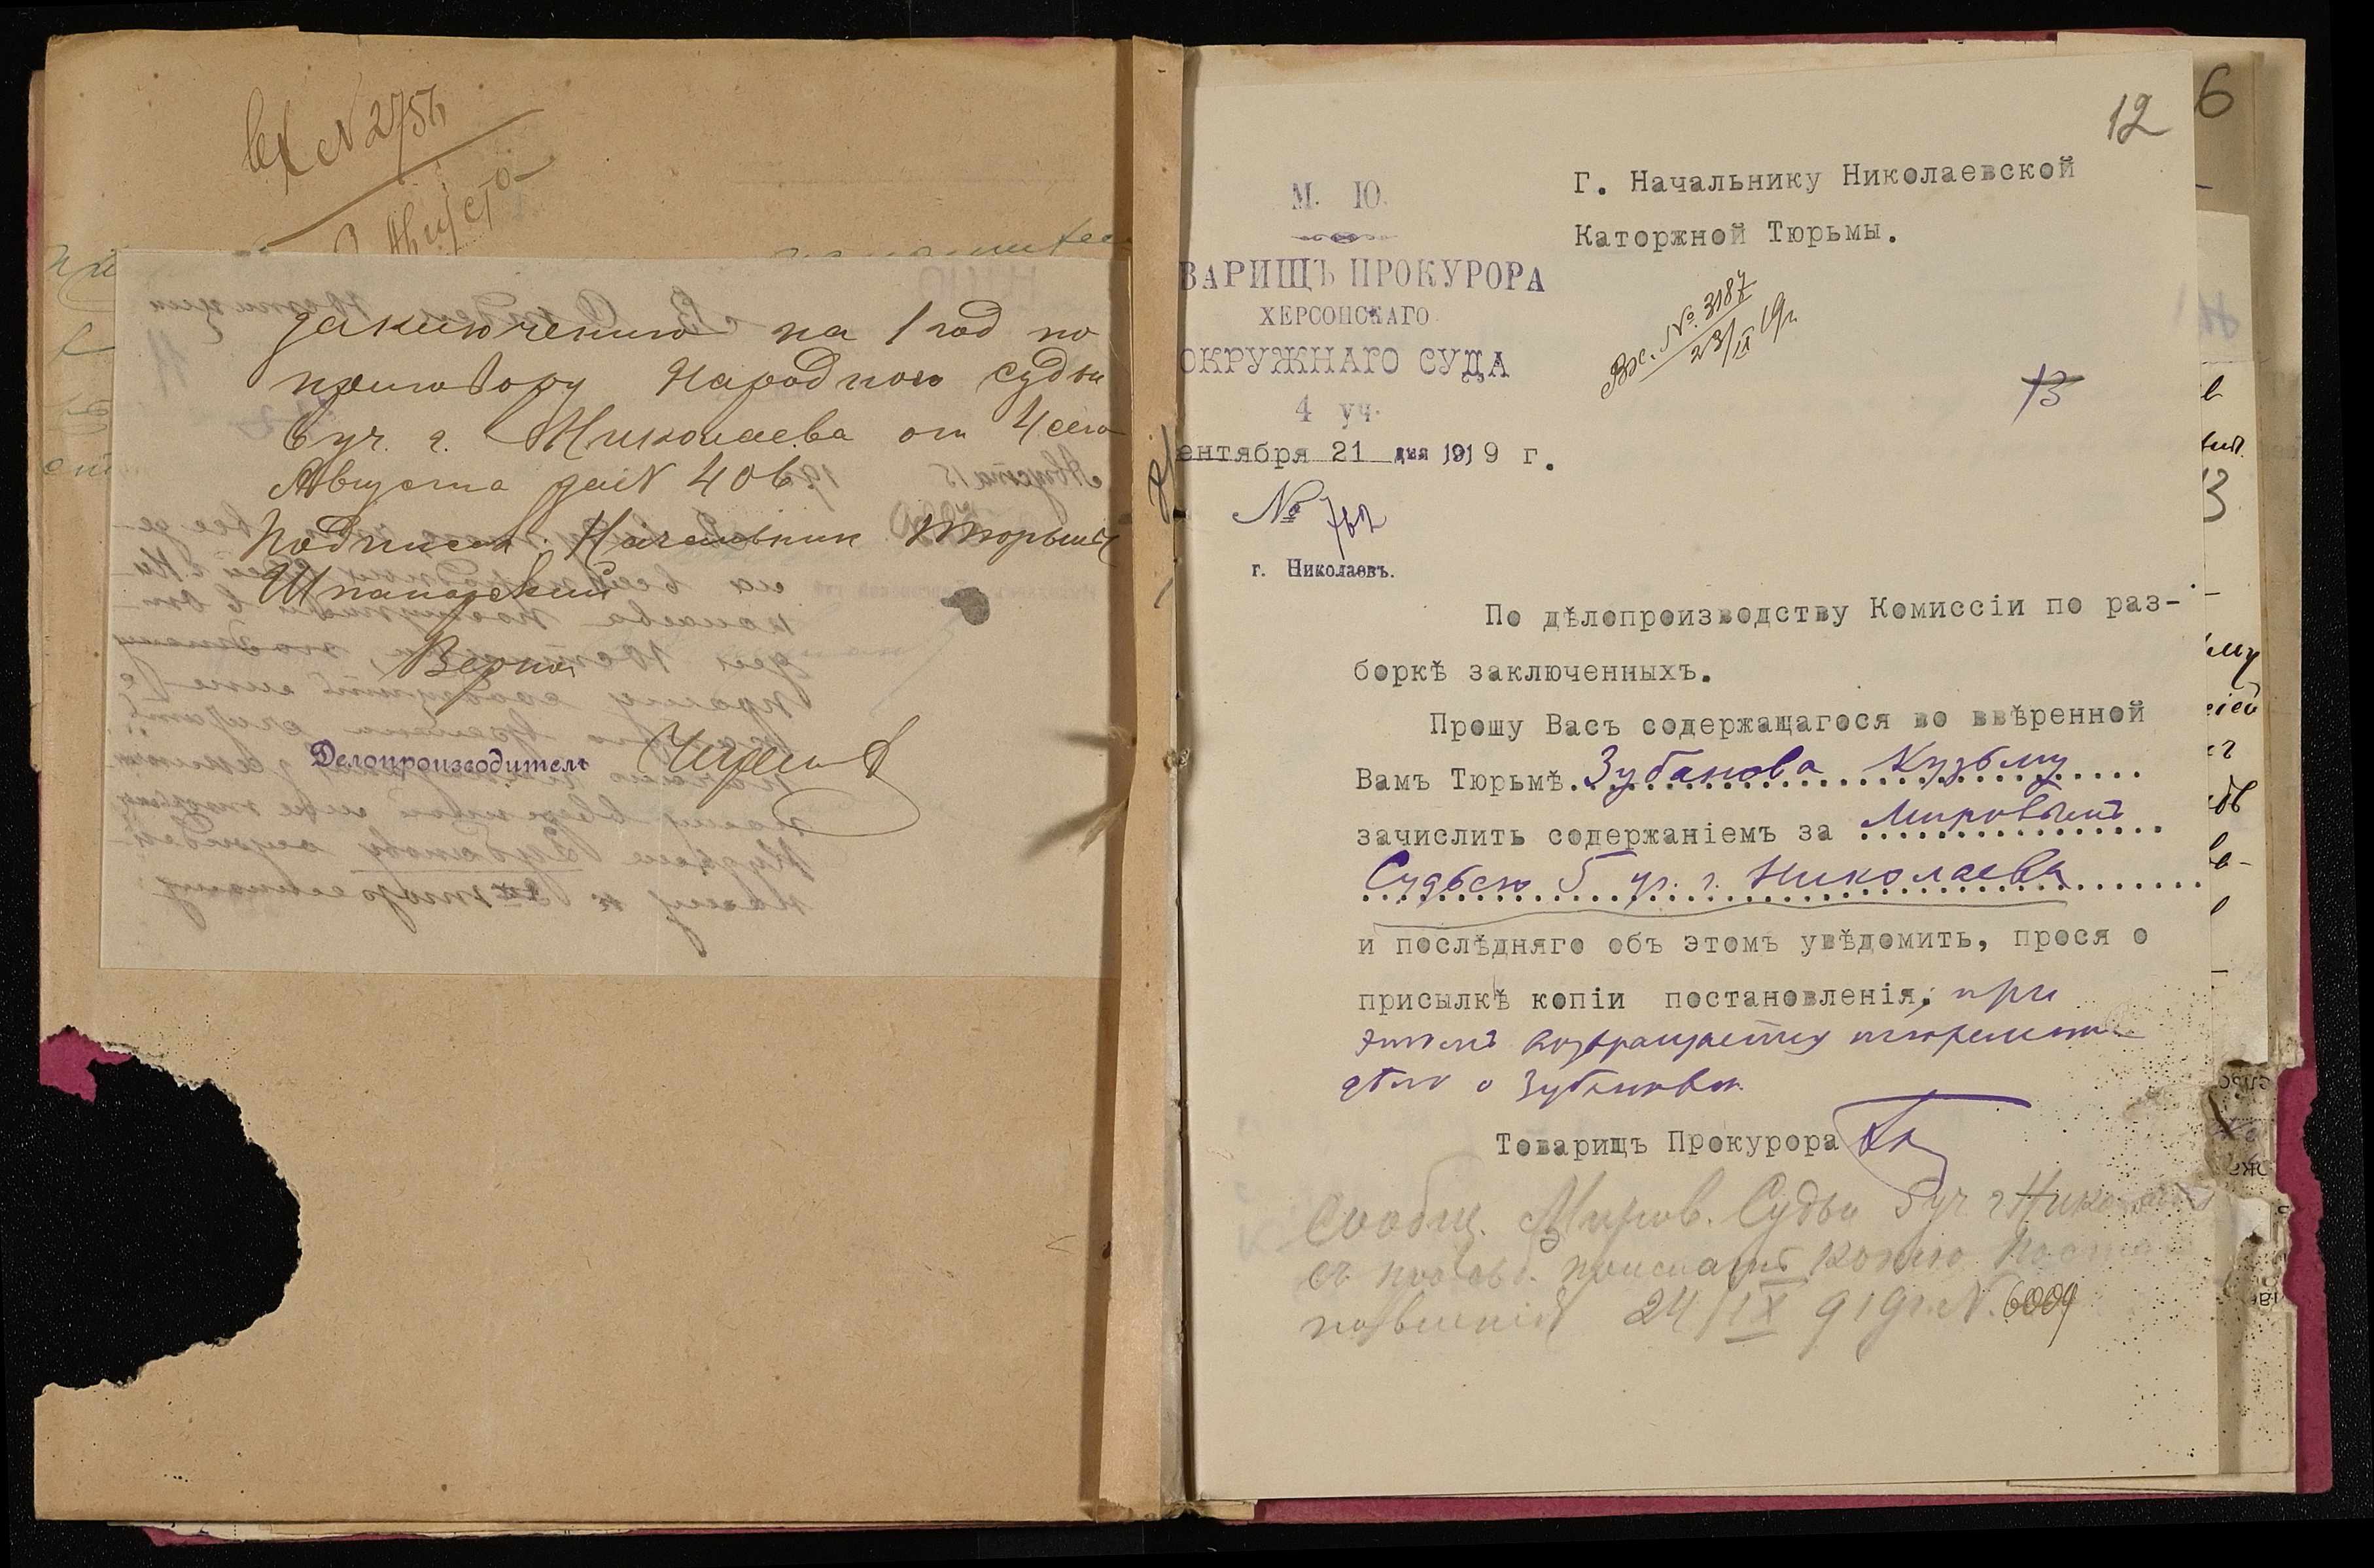 вх N 2757
Августа
заключению на 1 год по
приговору Народного судьи
6 уч. г. Николаева от 4 сего
Августа за N 406.
Подписал: Начальник Тюрьмы
Шпаковский
Верно:
Делопроизводитель
12
6
М. Ю.
ВАРИЩЪ ПРОКУРОРА
ХЕРСОНСКАГО
ОКРУЖНАГО СУДА
4 уч.
ентября 21 дня 1919 г.
№ 762
г. Николаевъ.
Г. Начальнику Николаевской
Каторжной Тюрьмы.
Вх. № 3187
23/IX 19г
13
По дѣлопроизводству Комиссіи по раз-
боркѣ заключенныхъ.
Прошу Васъ содержащагося во ввѣренной
Вамъ Тюрьмѣ Зубанова Кузьму
зачислить содержаніемъ за Мировымъ
Судьею 5 уч. г. Николаева
и послѣдняго объ этомъ увѣдомить, прося о
присылкѣ копіи постановленія, при
этомъ возвращается тюремное
дѣло о Зубанове
Товарищъ Прокурора
Сообщ. Миров. Судьи 5 уч г Николаева
съ просьб. прислать копію поста
новленія 24/IX 919г. N. 6009